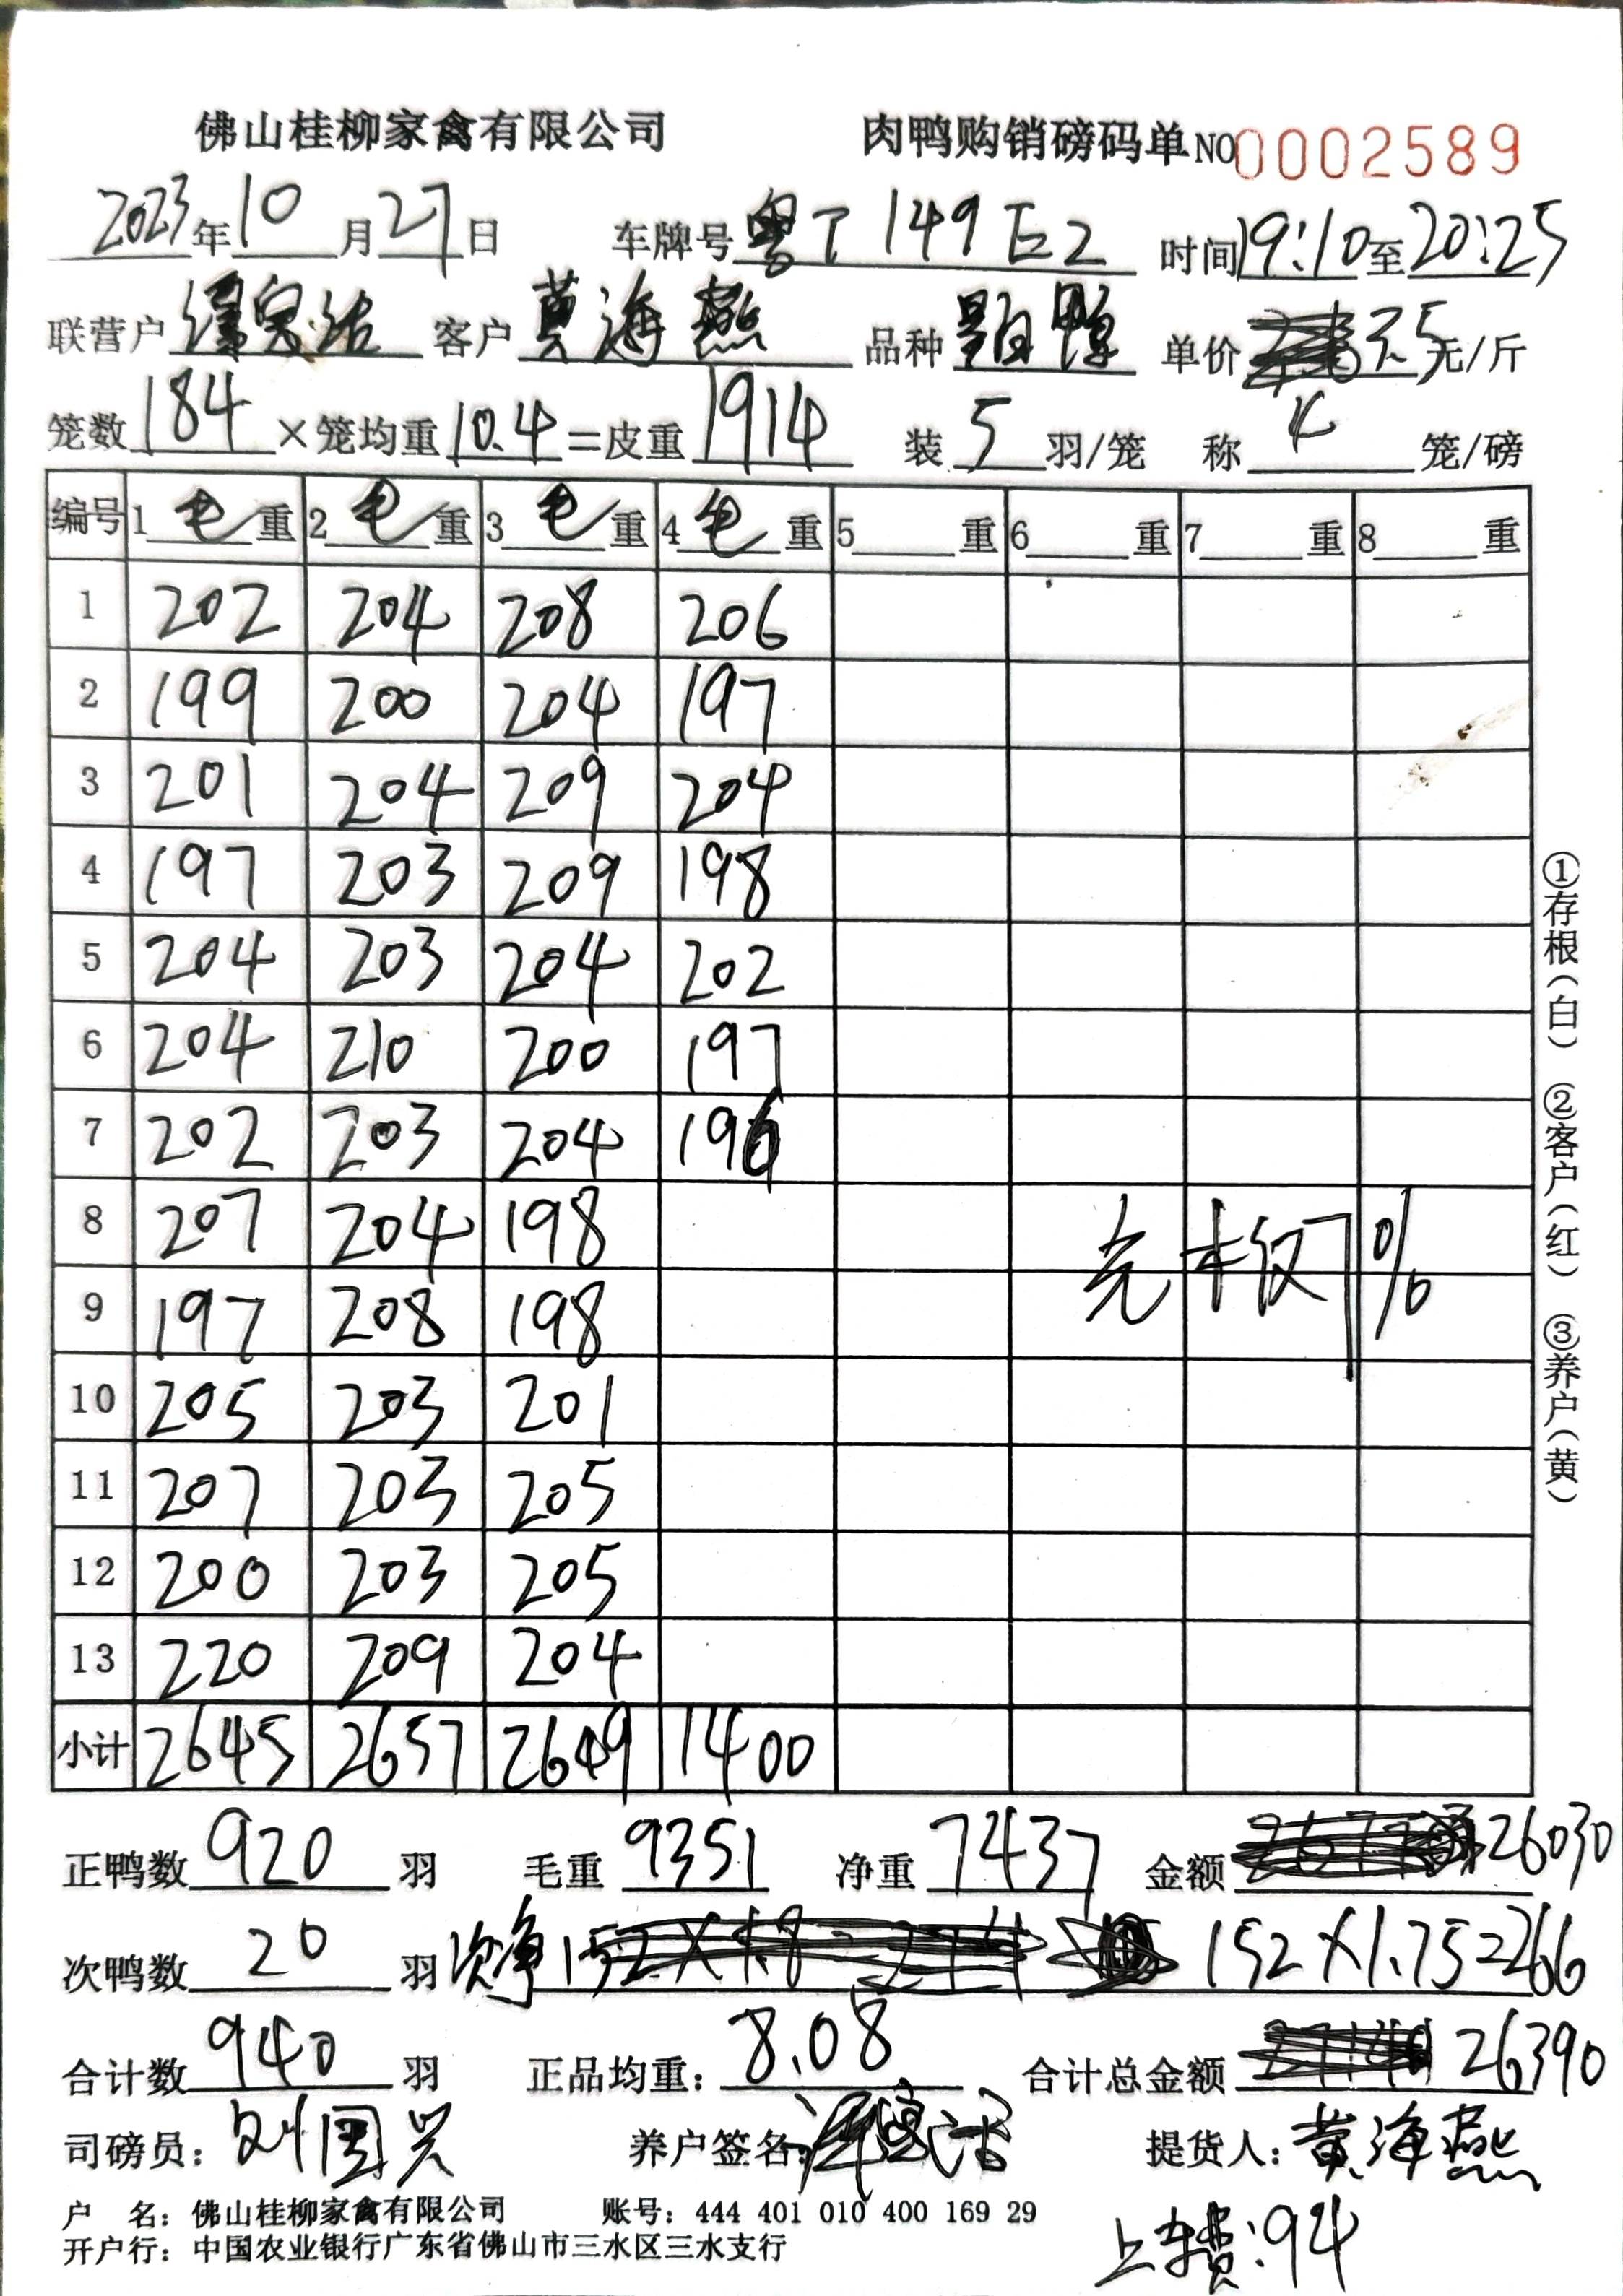 佛山桂柳家禽有限公司 肉鸭购销磅码单 NO 0002589
2023年10月27日 车牌号 粤T149E2 时间19:10至20:25
联营户 客户 黄海燕 品种 鸭 单价 3.5元/斤
笼数184×笼均重10.4=皮重1914 装5羽/笼 称4笼/磅
编号 1毛重 2毛重 3毛重 4毛重 5重 6重 7重 8重
1 202 204 208 206
2 199 200 204 197
3 201 204 209 204
4 197 203 209 198
5 204 203 204 202
6 204 210 200 197
7 202 203 204 196
8 207 204 198
9 197 208 198
10 205 203 201
11 207 203 205
12 200 203 205
13 220 209 204
小计 2645 2657 2649 1400
%
①存根(白) ②客户(红) ③养户(黄)
正鸭数920羽 毛重9351 净重7437 金额26030
次鸭数20羽 次净152×1.8=274 152×1.75=266
合计数940羽 正品均重:8.08 合计总金额26390
司磅员:刘国兴 养户签名: 提货人:黄海燕
户 名:佛山桂柳家禽有限公司 账号:444 401 010 400 169 29
开户行:中国农业银行广东省佛山市三水区三水支行
上车费:94